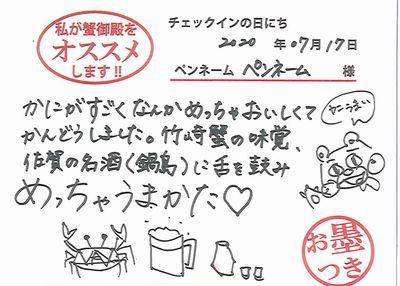 私が蟹御殿を
オススメ
します!!
チェックインの日にち
2020 年 07月 17日
ペンネーム ペンネーム 様
かにがすごくなんかめっちゃおいしくて
かんどうしました。竹崎蟹の味覚、
佐賀の名酒(鍋島)に舌を鼓み
めっちゃうまかた♡
カニうまい
お墨
つき